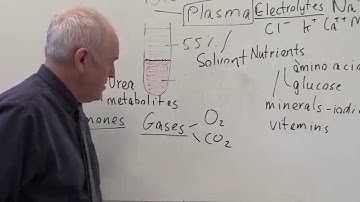 Plasma
Electrolytes Na
Cl⁻ K⁺ Ca⁺⁺ M
55%
Solvent
Nutrients
amino acid
glucose
minerals - iodi
vitamins
Urea
metabolites
mones
Gases
O₂
CO₂